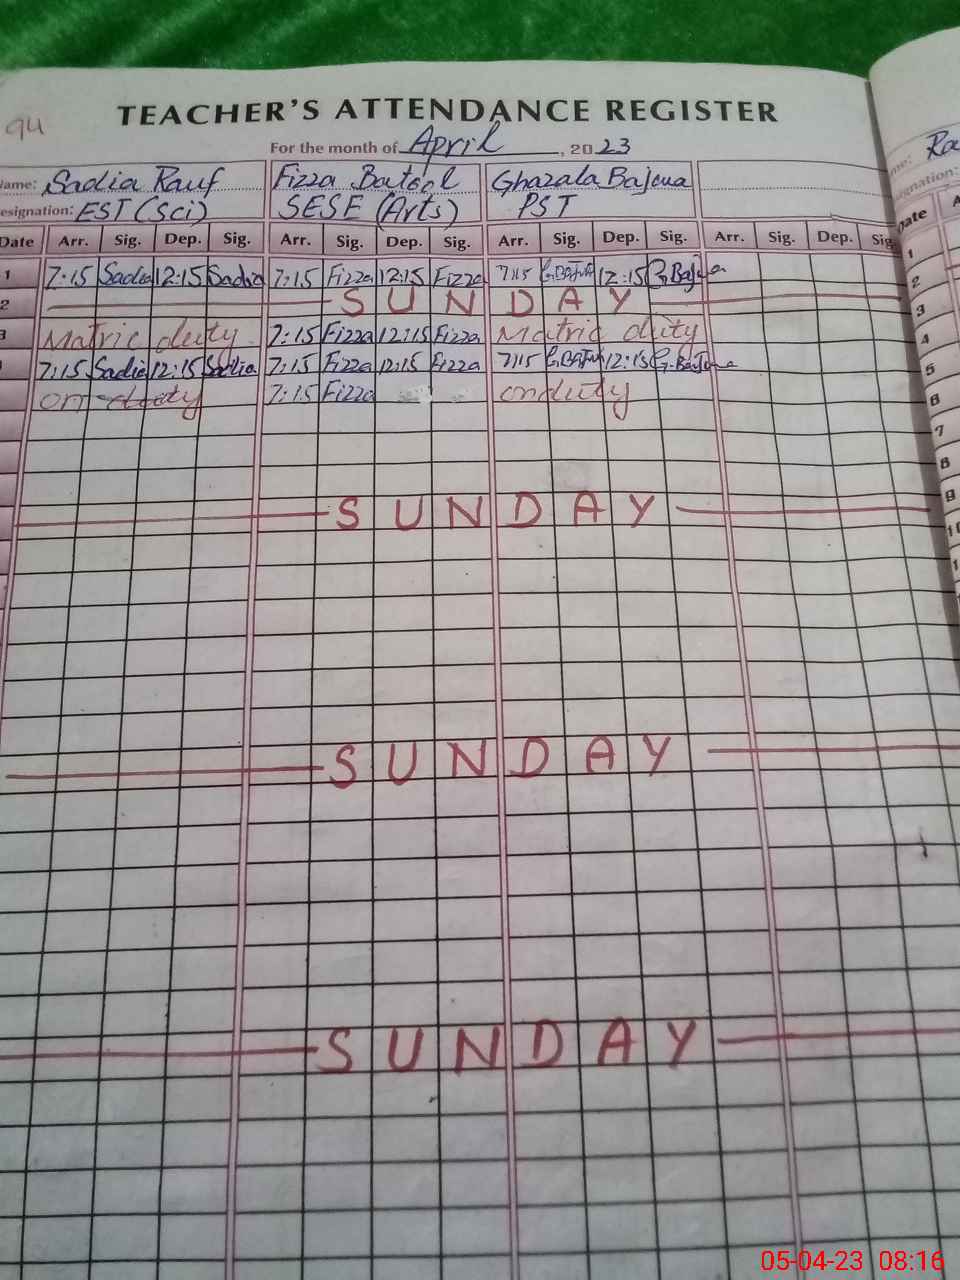 94
TEACHER'S ATTENDANCE REGISTER
For the month of April, 2023
Name: Sadia Rauf Fizza Batool Ghazala Bajwa
Designation: EST (Sci) SESE (Arts) PST
Date Arr. Sig. Dep. Sig. Arr. Sig. Dep. Sig. Arr. Sig. Dep. Sig. Arr. Sig. Dep. Sig.
1 7:15 Sadia 12:15 Sadia 7:15 Fizza 12:15 Fizza 7:15 G.Bajwa 12:15 G.Bajwa
2 SUNDAY
3 Matric duty 7:15 Fizza 12:15 Fizza Matric duty
7:15 Sadia 12:15 Sadia 7:15 Fizza 12:15 Fizza 7:15 G.Bajwa 12:15 G.Bajwa
on duty 7:15 Fizza on duty
SUNDAY
SUNDAY
SUNDAY
Ra
Date
1
2
3
4
5
6
7
8
9
10
05-04-23 08:16